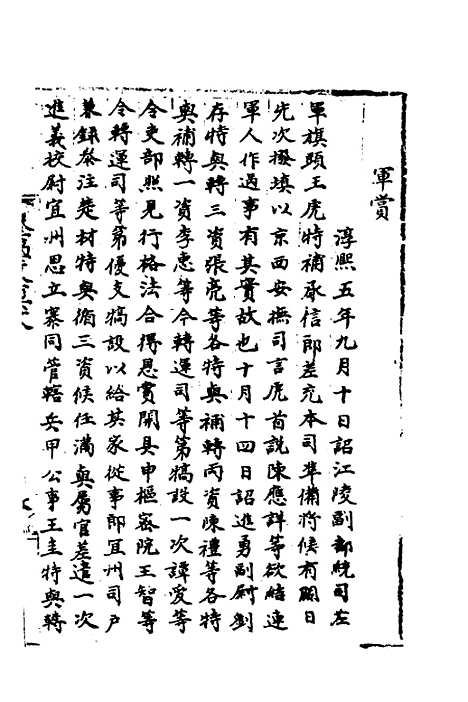 軍賞
淳熙五年九月十日詔江陵副都統司左
軍旗頭王虎特補承信郎差充本司準備將候有闕日
先次撥填以京西安撫司言虎首說陳應詳等欲結連
軍人作過事有其實故也十月十四日詔進勇副尉劉
存特與轉三資張亮等各特與補轉兩資陳禮等各特
與補轉一資李忠等令轉運司等第犒設一次譚愛等
令吏部照見行格法合得恩賞開具申樞密院王智等
令轉運司等第優支犒設以給其家從事郎宜州司戶
兼錄參注楚材特與循三資候任滿與屬官差遣一次
進義校尉宜州思立寨同管轄兵甲公事王圭特與轉